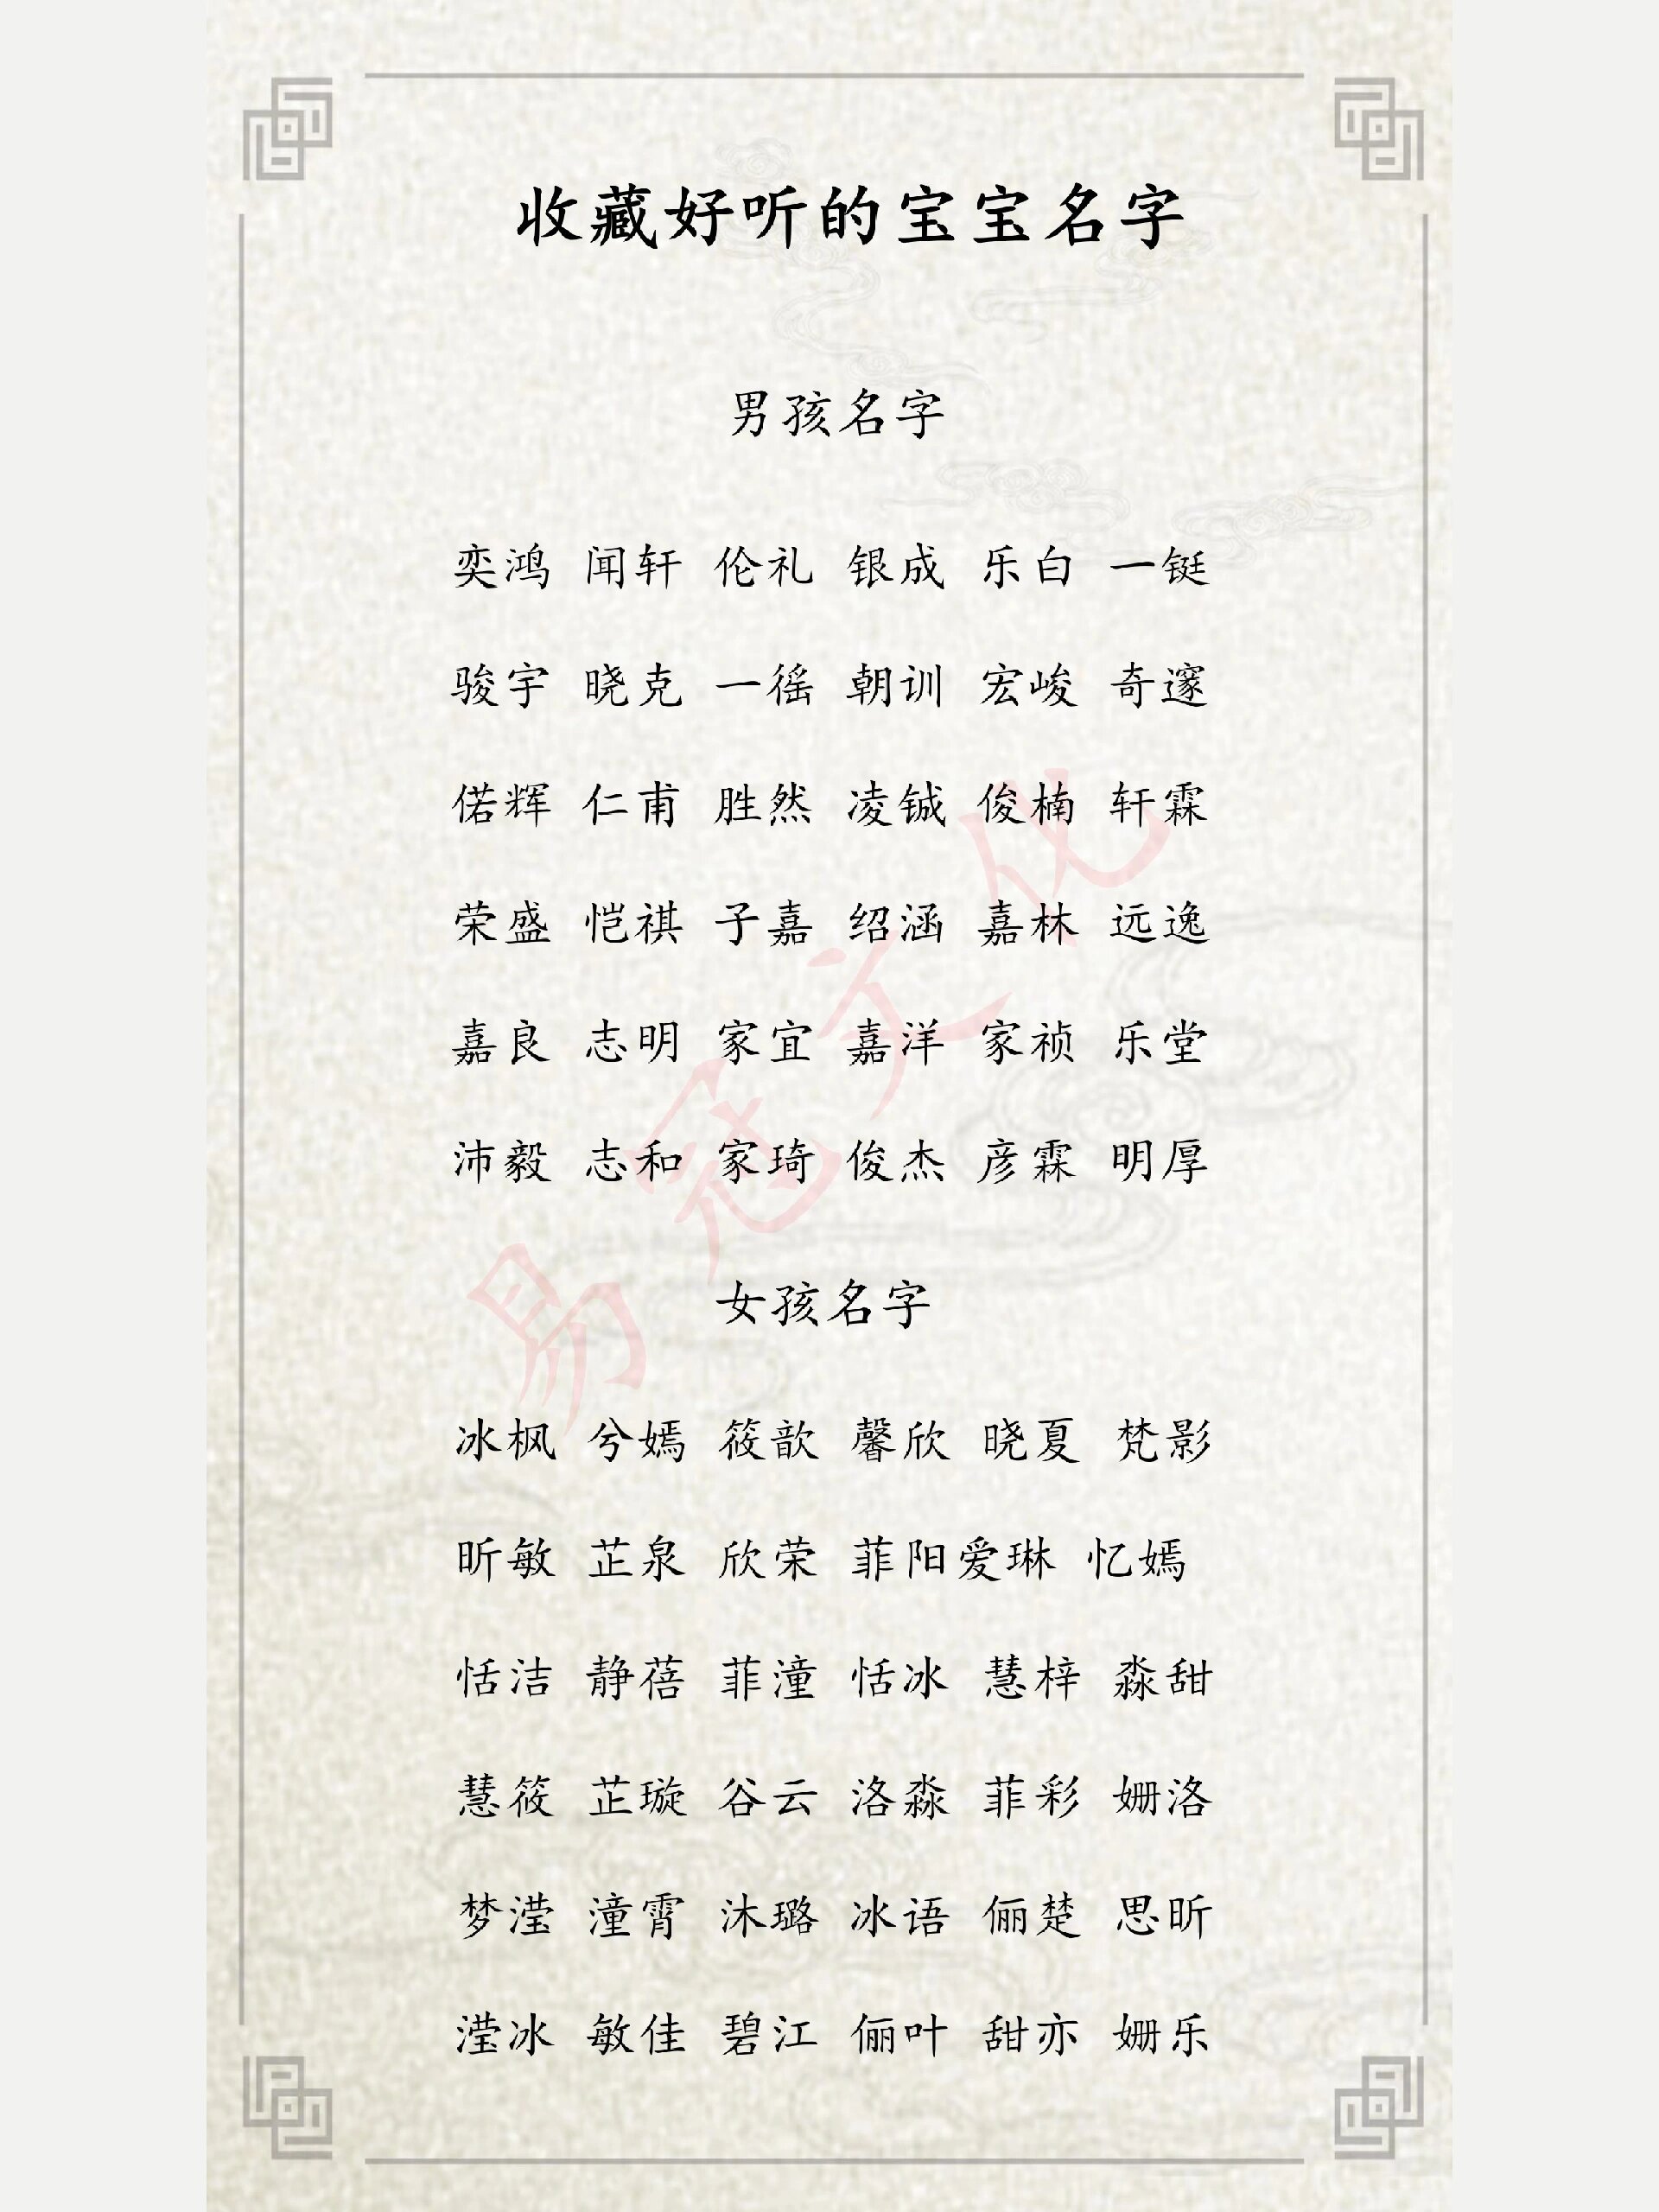 收藏好听的宝宝名字
男孩名字
奕鸿 闻轩 伦礼 银成 乐白 一铤
骏宇 晓克 一徭 朝训 宏峻 奇邃
偌辉 仁甫 胜然 凌铖 俊楠 轩霖
荣盛 恺祺 子嘉 绍涵 嘉林 远逸
嘉良 志明 家宜 嘉洋 家祯 乐堂
沛毅 志和 家琦 俊杰 彦霖 明厚
女孩名字
冰枫 兮嫣 筱歆 馨欣 晓夏 梵影
昕敏 芷泉 欣荣 菲阳爱琳 忆嫣
恬洁 静蓓 菲潼 恬冰 慧梓 淼甜
慧筱 芷璇 谷云 洛淼 菲彩 姗洛
梦滢 潼霄 沐璐 冰语 俪楚 思昕
滢冰 敏佳 碧江 俪叶 甜亦 姗乐
易冠文化